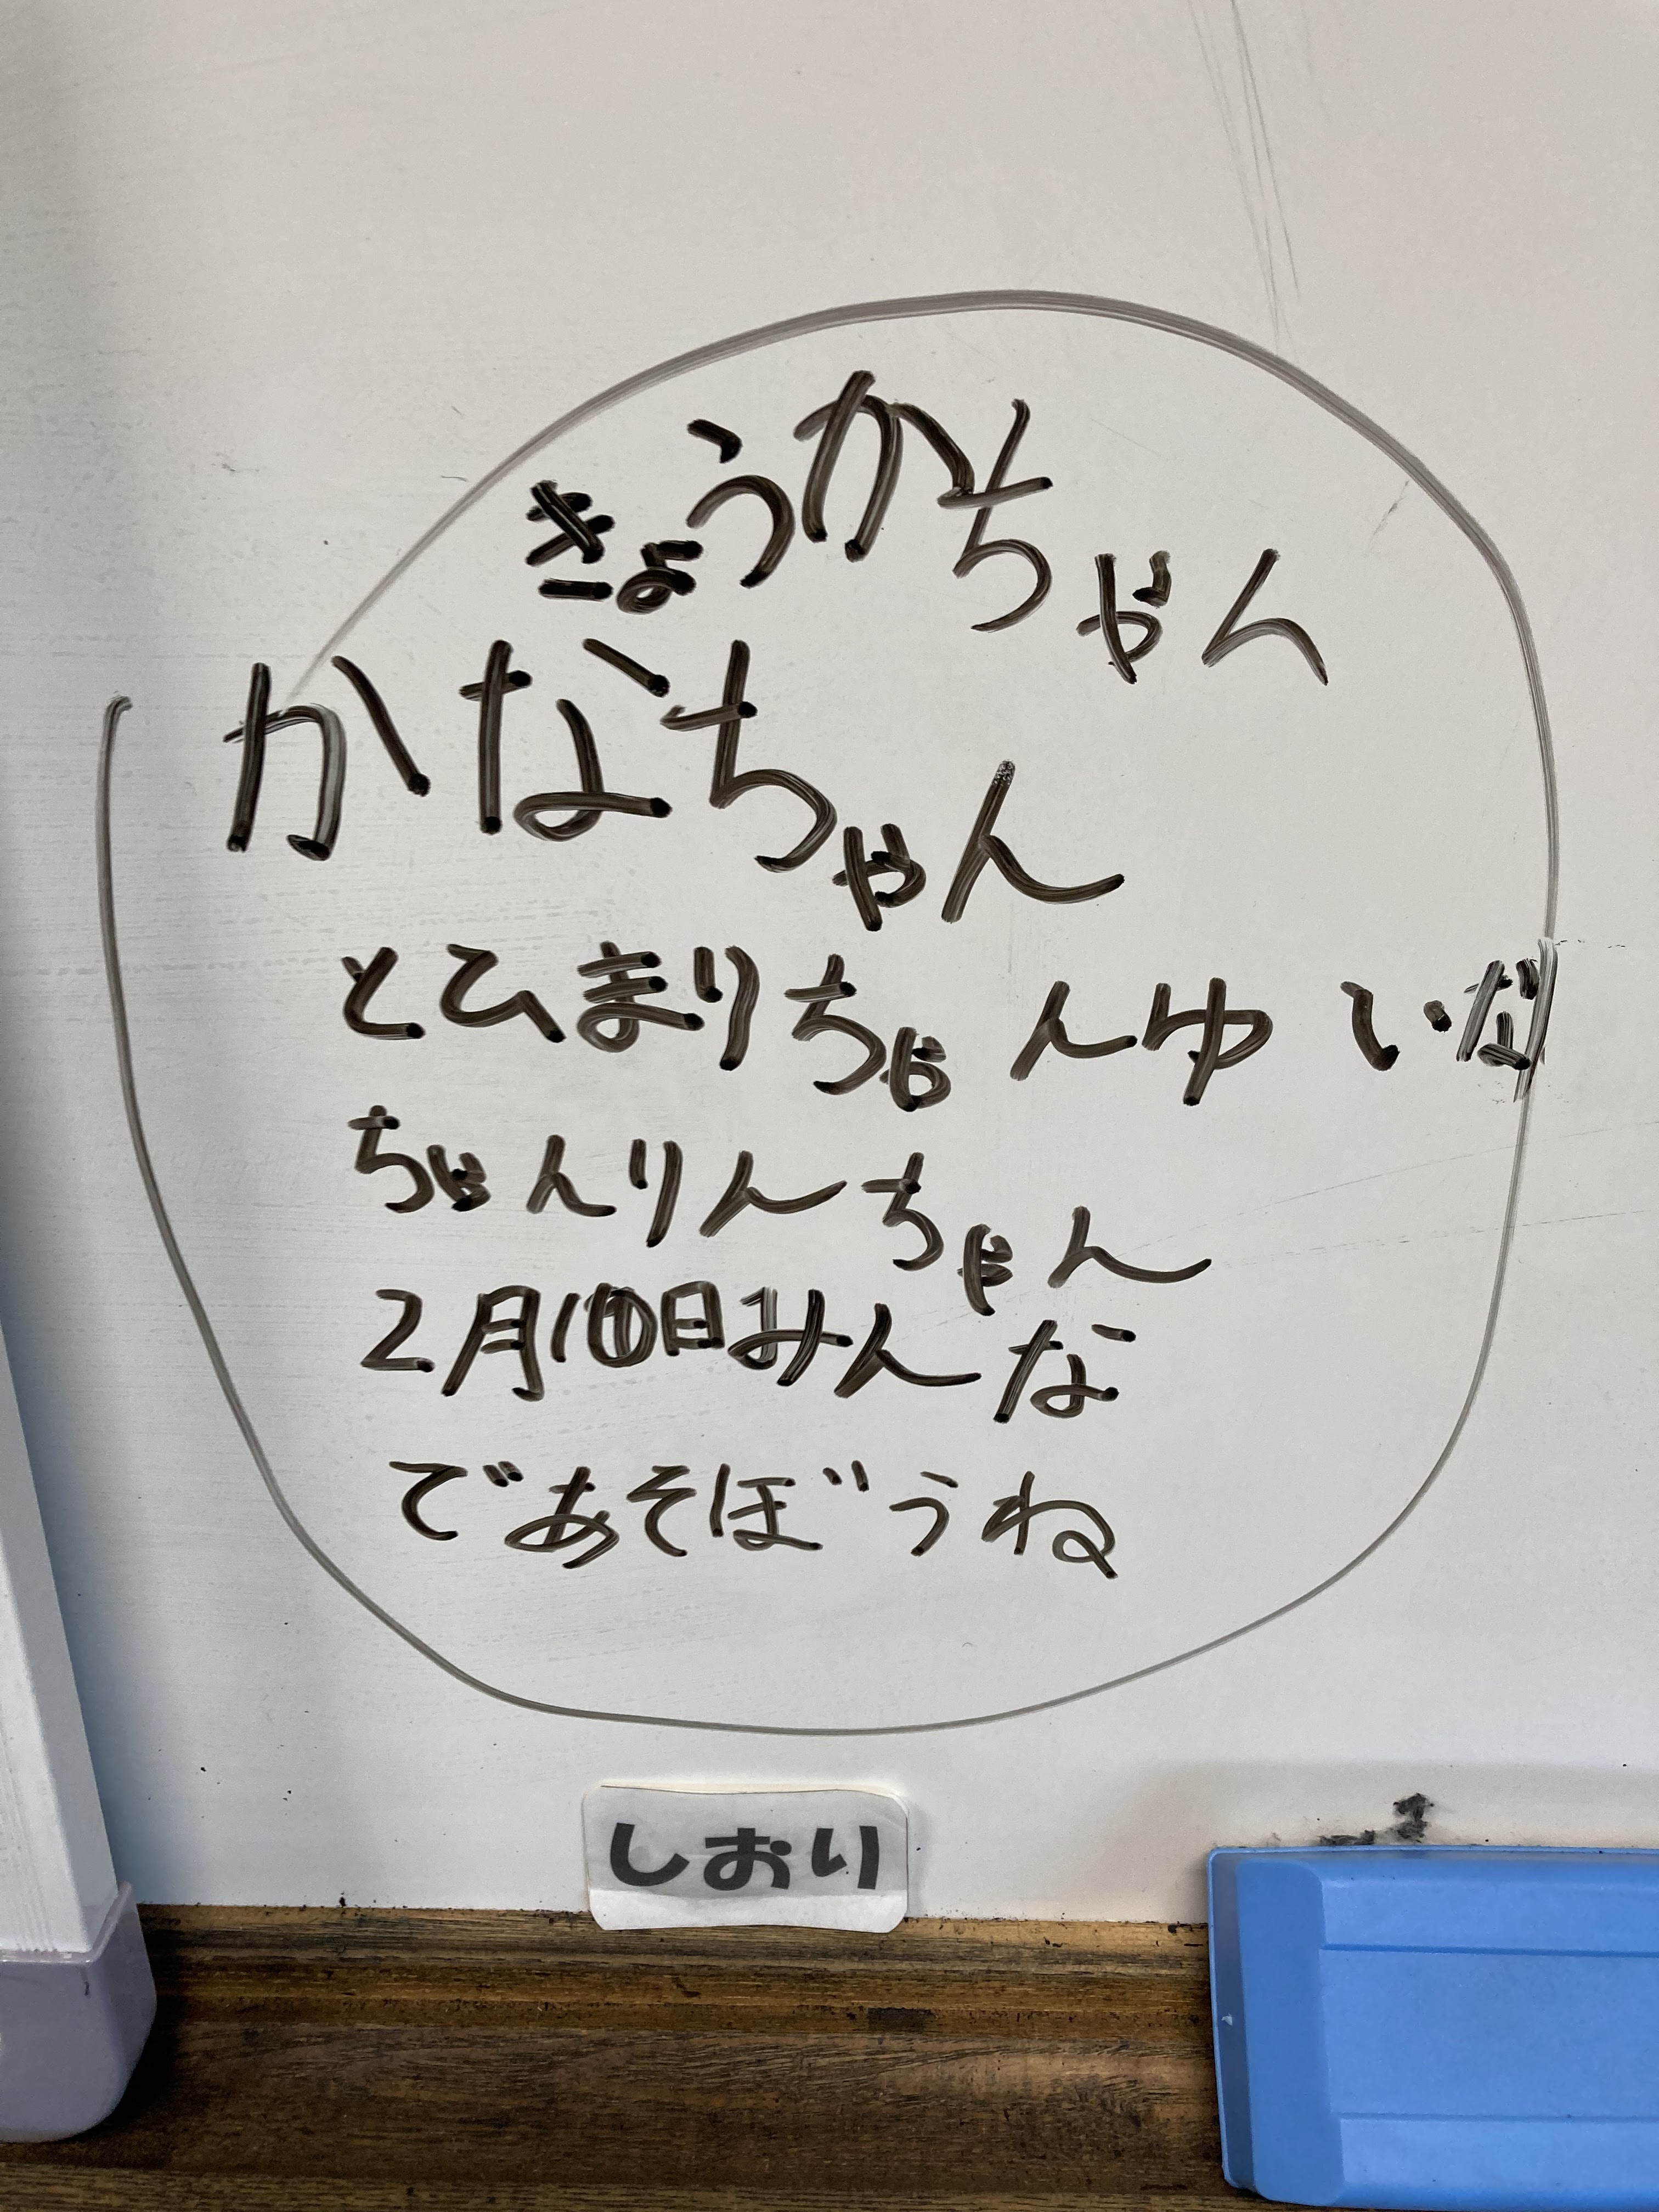 きょうかちゃん
かなちゃん
とひまりちゃんゆいな
ちゃんりんちゃん
2月10日みんな
であそぼうね
しおり